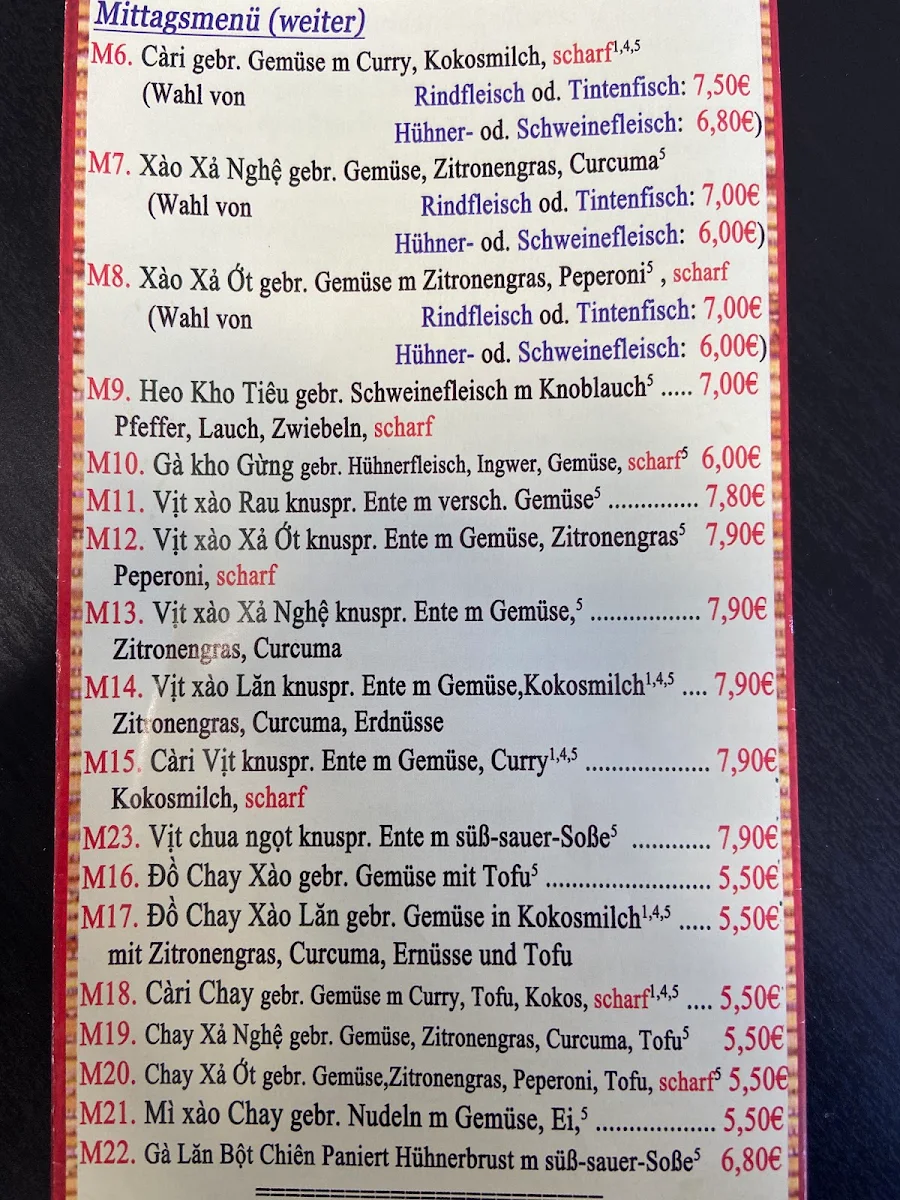 Mittagsmenü (weiter)
M6. Càri gebr. Gemüse m Curry, Kokosmilch, scharf1,4,5
(Wahl von Rindfleisch od. Tintenfisch: 7,50€
Hühner- od. Schweinefleisch: 6,80€)
M7. Xào Xả Nghệ gebr. Gemüse, Zitronengras, Curcuma5
(Wahl von Rindfleisch od. Tintenfisch: 7,00€
Hühner- od. Schweinefleisch: 6,00€)
M8. Xào Xả Ớt gebr. Gemüse m Zitronengras, Peperoni5 , scharf
(Wahl von Rindfleisch od. Tintenfisch: 7,00€
Hühner- od. Schweinefleisch: 6,00€)
M9. Heo Kho Tiêu gebr. Schweinefleisch m Knoblauch5 ..... 7,00€
Pfeffer, Lauch, Zwiebeln, scharf
M10. Gà kho Gừng gebr. Hühnerfleisch, Ingwer, Gemüse, scharf5 6,00€
M11. Vịt xào Rau knuspr. Ente m versch. Gemüse5 .............. 7,80€
M12. Vịt xào Xả Ớt knuspr. Ente m Gemüse, Zitronengras5 7,90€
Peperoni, scharf
M13. Vịt xào Xả Nghệ knuspr. Ente m Gemüse,5 ................. 7,90€
Zitronengras, Curcuma
M14. Vịt xào Lăn knuspr. Ente m Gemüse,Kokosmilch1,4,5 .... 7,90€
Zitronengras, Curcuma, Erdnüsse
M15. Càri Vịt knuspr. Ente m Gemüse, Curry1,4,5 ................... 7,90€
Kokosmilch, scharf
M23. Vịt chua ngọt knuspr. Ente m süß-sauer-Soße5 ............ 7,90€
M16. Đồ Chay Xào gebr. Gemüse mit Tofu5 ......................... 5,50€
M17. Đồ Chay Xào Lăn gebr. Gemüse in Kokosmilch1,4,5 ..... 5,50€
mit Zitronengras, Curcuma, Ernüsse und Tofu
M18. Càri Chay gebr. Gemüse m Curry, Tofu, Kokos, scharf1,4,5 .... 5,50€
M19. Chay Xả Nghệ gebr. Gemüse, Zitronengras, Curcuma, Tofu5 5,50€
M20. Chay Xả Ớt gebr. Gemüse,Zitronengras, Peperoni, Tofu, scharf5 5,50€
M21. Mì xào Chay gebr. Nudeln m Gemüse, Ei,5 .................. 5,50€
M22. Gà Lăn Bột Chiên Paniert Hühnerbrust m süß-sauer-Soße5 6,80€